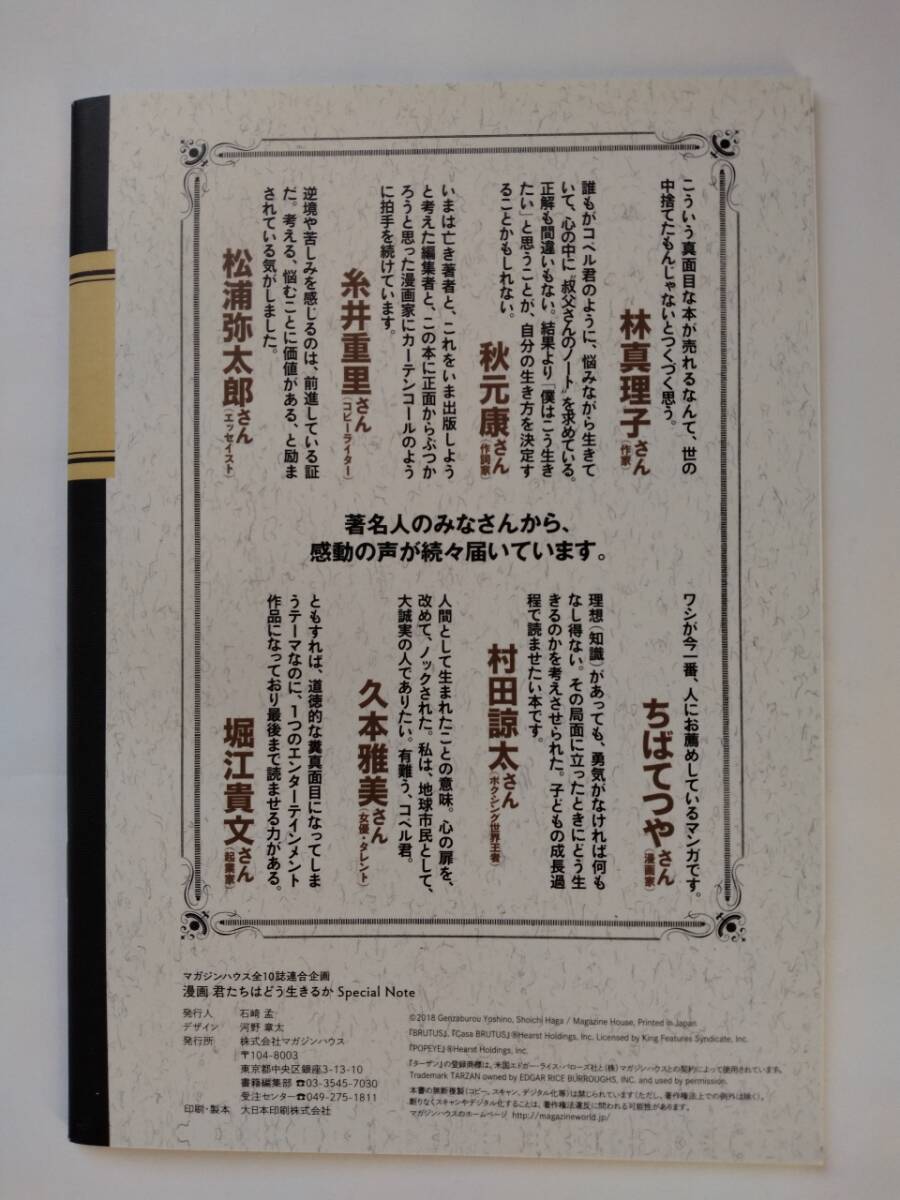 こういう真面目な本が売れるなんて、世の
中捨てたもんじゃないとつくづく思う。
林真理子さん(作家)
誰もがコペル君のように、悩みながら生きて
いて、心の中に〝叔父さんのノート〟を求めている。
正解も間違いもない。結果より「僕はこう生き
たい」と思うことが、自分の生き方を決定す
ることかもしれない。
秋元康さん(作詞家)
いまは亡き著者と、これをいま出版しよう
と考えた編集者と、この本に正面からぶつか
ろうと思った漫画家にカーテンコールのよう
に拍手を続けています。
糸井重里さん(コピーライター)
逆境や苦しみを感じるのは、前進している証
だ。考える、悩むことに価値がある、と励ま
されている気がしました。
松浦弥太郎さん(エッセイスト)
著名人のみなさんから、
感動の声が続々届いています。
ワシが今一番、人にお薦めしているマンガです。
ちばてつやさん(漫画家)
理想(知識)があっても、勇気がなければ何も
なし得ない。その局面に立ったときにどう生
きるのかを考えさせられた。子どもの成長過
程で読ませたい本です。
村田諒太さん(ボクシング世界王者)
人間として生まれたことの意味。心の扉を、
改めて、ノックされた。私は、地球市民として、
大誠実の人でありたい。有難う、コペル君。
久本雅美さん(女優・タレント)
ともすれば、道徳的な糞真面目になってしま
うテーマなのに、1つのエンターテインメント
作品になっており最後まで読ませる力がある。
堀江貴文さん(起業家)
マガジンハウス全10誌連合企画
漫画 君たちはどう生きるか Special Note
発行人 石﨑 孟
デザイン 河野 章太
発行所 株式会社マガジンハウス
〒104-8003
東京都中央区銀座3-13-10
書籍編集部 ☎03-3545-7030
受注センター ☎049-275-1811
印刷・製本 大日本印刷株式会社
©2018 Genzaburou Yoshino, Shoichi Haga / Magazine House, Printed in Japan
『BRUTUS』、『Casa BRUTUS』®Hearst Holdings, Inc. Licensed by King Features Syndicate, Inc.
『POPEYE』®Hearst Holdings, Inc.
『ターザン』の登録商標は、米国エドガー・ライス・バローズ社と(株)マガジンハウスとの契約によって使用されています。
Trademark TARZAN owned by EDGAR RICE BURROUGHS, INC. and used by permission.
本書の無断複製(コピー、スキャン、デジタル化等)は禁じられています(ただし、著作権法上での例外は除く)。
断りなくスキャンやデジタル化することは、著作権法違反に問われる可能性があります。
マガジンハウスのホームページ http://magazineworld.jp/